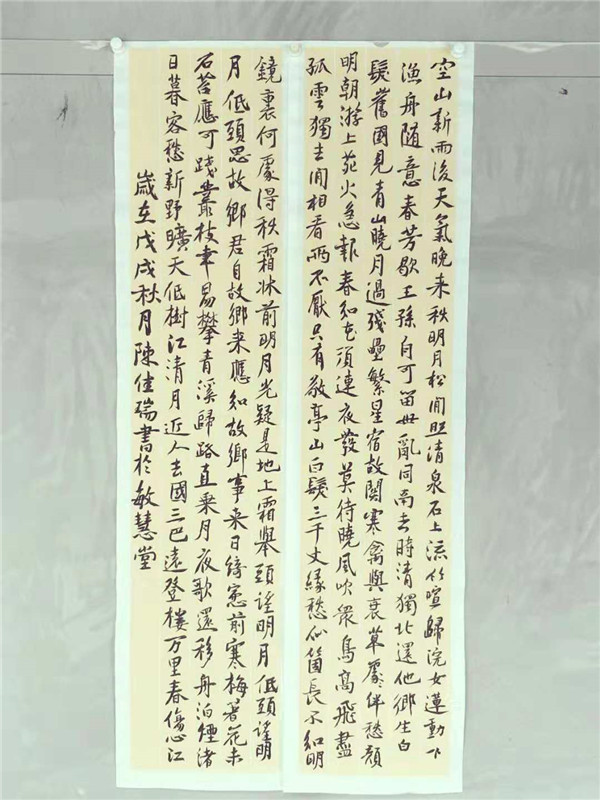 空山新雨後天氣晚来秋明月松间照清泉石上流竹喧歸浣女蓮動下
漁舟随意春芳歇王孫自可留世亂同南去時清獨北還他鄉生白
髮舊國見青山曉月過殘壘繁星宿故關寒禽與衰草處伴愁顏
明朝游上苑火急報春知花須連夜發莫待曉風吹眾鳥高飛盡
孤雲獨去閒相看两不厭只有敬亭山白髮三千丈緣愁似箇長不知明
鏡裏何處得秋霜牀前明月光疑是地上霜舉頭望明月低頭望明
月低頭思故鄉君自故鄉来應知故鄉事来日綺窓前寒梅著花未
石苔應可踐叢枝幸易攀青溪歸路直乘月夜歌還移舟泊煙渚
日暮客愁新野曠天低樹江清月近人去國三巴遠登樓万里春傷心江
歲在戊戌秋月陳佳瑞書於敏慧堂